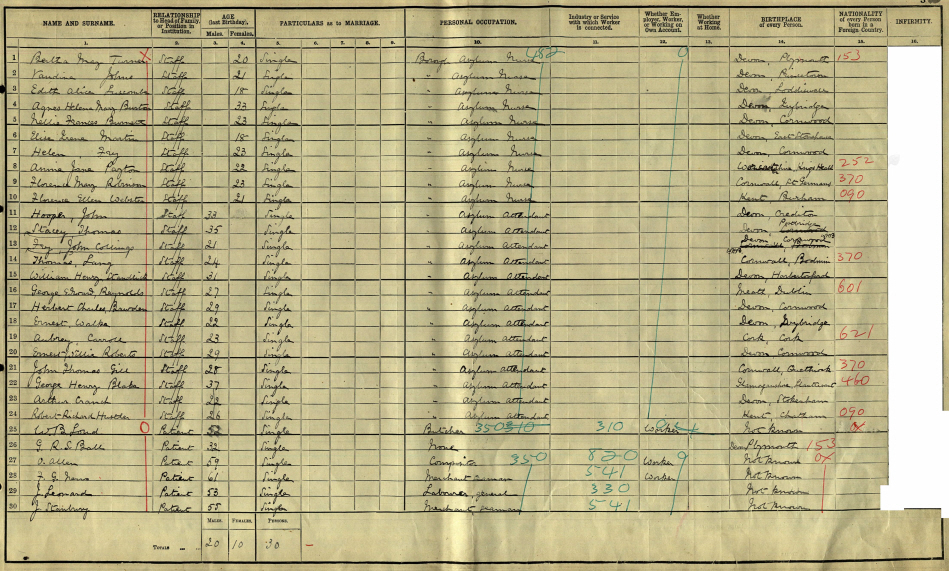 NAME AND SURNAME. RELATIONSHIP to Head of Family, or Position in Institution. AGE (last Birthday). PARTICULARS as to MARRIAGE. PERSONAL OCCUPATION. Industry or Service with which Worker is connected. Whether Employer, Worker, or Working on Own Account. Whether Working at Home. BIRTHPLACE of every Person. NATIONALITY of every Person born in a Foreign Country. INFIRMITY.
Males. Females.
1. 2. 3. 4. 5. 6. 7. 8. 9. 10. 11. 12. 13. 14. 15. 16.
1 Bertha May Turner Staff 20 Single Borough Asylum Nurse Devon, Plymouth 153
2 Johns Staff 21 Single " Asylum Nurse Devon,
3 Edith Alice Luscombe Staff 18 Single " Asylum Nurse Devon, Loddiswell
4 Agnes Helena Mary Burton Staff 33 Single " Asylum Nurse Devon, Ivybridge
5 Nellie Frances Burnett Staff 23 Single " Asylum Nurse Devon, Cornwood
6 Eliza Irena Martin Staff 18 Single " Asylum Nurse Devon, East Stonehouse
7 Helen Fry Staff 23 Single " Asylum Nurse Devon, Cornwood
8 Annie Jane Payton Staff 22 Single " Asylum Nurse Worcestershire Kings Heath 252
9 Florence Mary Robinson Staff 23 Single " Asylum Nurse Cornwall, St Germans 370
10 Florence Ellen Webster Staff 21 Single " Asylum Nurse Kent, Burham 090
11 Hooper, John Staff 33 Single " Asylum Attendant Devon, Crediton
12 Stacey Thomas Staff 35 Single " Asylum Attendant Devon,
13 Fry, John Collings Staff 21 Single " Asylum Attendant Devon Cornwood
14 Thomas, Luny Staff 24 Single " Asylum Attendant Cornwall, Bodmin 370
15 William Henry Staff 31 Single " Asylum Attendant Devon, Harbertonford
16 George Reynolds Staff 27 Single " Asylum Attendant Meath, Dublin 601
17 Herbert Charles Bowden Staff 29 Single " Asylum Attendant Devon, Cornwood
18 Ernest, Walke Staff 22 Single " Asylum Attendant Devon, Ivybridge
19 Aubrey, Carroll Staff 23 Single " Asylum Attendant Cork, Cork 621
20 Ernest Willie Roberts Staff 29 Single " Asylum Attendant Devon, Cornwood
21 John Thomas Gill Staff 28 Single " Asylum Attendant Cornwall, Quethiock 370
22 George Henry Blake Staff 37 Single " Asylum Attendant Glamorganshire, 460
23 Arthur Cranch Staff 22 Single " Asylum Attendant Devon, Stokenham
24 Robert Richard Staff 26 Single " Asylum Attendant Kent, Chatham 090
25 W. B. Ford Patient 52 Single Butcher 310 Worker Not Known
26 G. R. S. Ball Patient 32 Single None Devon Plymouth 153
27 O. Allen Patient 59 Single Compositor 350 820 Worker Not Known
28 F. G. Patient 61 Single Merchant Seaman 541 Worker Not Known
29 J. Leonard Patient 53 Single Labourer, general 330 Not Known
30 J. Stanbury Patient 55 Single Merchant, seaman 541 Not Known
MALES. FEMALES. PERSONS.
TOTALS ... 20 10 30 –